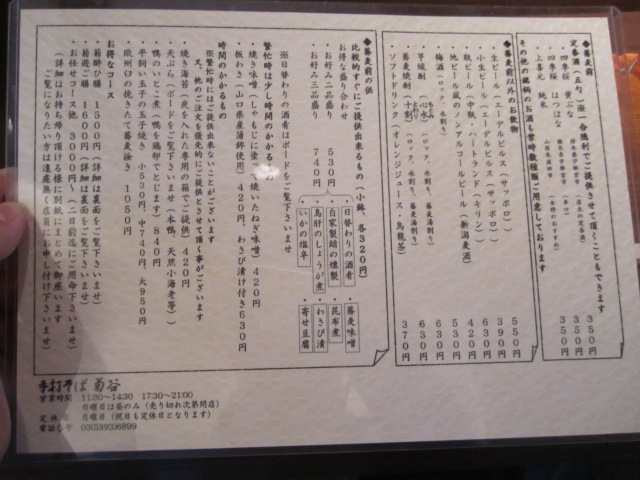 ◆蕎麦前
定番酒(五勺)※一合徳利でご提供させて頂くこともできます
四季桜 黄ぶな 350円
四季桜 はつはな 350円
上喜元 純米 350円
その他の銘柄のお酒も常時数種類ご用意しております
◆蕎麦前以外のお飲物
生ビール(エーデルピルス(サッポロ)) 550円
小生ビール(エーデルピルス(サッポロ)) 390円
瓶ビール(中瓶・ハートランド(キリン)) 630円
地ビール風のノンアルコールビール(新潟麦酒) 420円
梅酒(ロック、水割り) 530円
芋焼酎 (ロック、水割り、蕎麦湯割り) 630円
蕎麦焼酎 (ロック、水割り、蕎麦湯割り) 630円
ソフトドリンク(オレンジジュース・烏龍茶) 370円
◆蕎麦前の供
比較的すぐにご提供出来るもの(小鉢、各320円)
お得な盛り合わせ
・お好み二品盛り 530円
・お好み三品盛り 740円
・日替わりの酒肴 ・蕎麦味噌
・自家製鯖の燻製 ・昆布煮
・鳥肝のしょうが煮 ・わさび漬
・いかの塩辛 ・寄せ豆腐
※日替わりの酒肴はボードをご覧下さいませ
繁忙時は少し時間のかかるもの
・焼き味噌(しゃもじに塗って焼いたねぎ味噌) 420円
・板わさ(山口県産蒲鉾使用) 420円、わさび漬け付き630円
時間のかかるもの
※繁忙時にはご提供出来ないことがございます
又、他のご注文を優先的にご提供させて頂く事がございます
・焼き海苔(炭を入れた専用の箱でご提供) 420円
・天ぷら(ボードをご覧下さいませ(本鴨、天然小海老等))
・鴨のいとこ煮(鴨を鶏卵でとじます) 840円
・平飼い玉子の玉子焼き 小530円、中740円、大950円
・欧州臼の挽きたて蕎麦掻き 1050円
お得なコース
・菊酔ひ膳 1500円(詳細は裏面をご覧下さいませ)
・菊遊ご膳 1600円(詳細は裏面をご覧下さいませ)
・お任せコース他 3000円〜(二日前迄にご用命下さいませ)
(詳細はお持ち帰り頂ける様に別紙にまとめて御座います
ご覧になりたい方は遠慮無く店員にお申し付け下さいませ)
手打そば 菊谷
営業時間 11:30〜14:30 17:30〜21:00
日曜日は昼のみ(売り切れ次第閉店)
定休日 月曜日(祝日も定休日となります)
電話番号 03(5393)6899